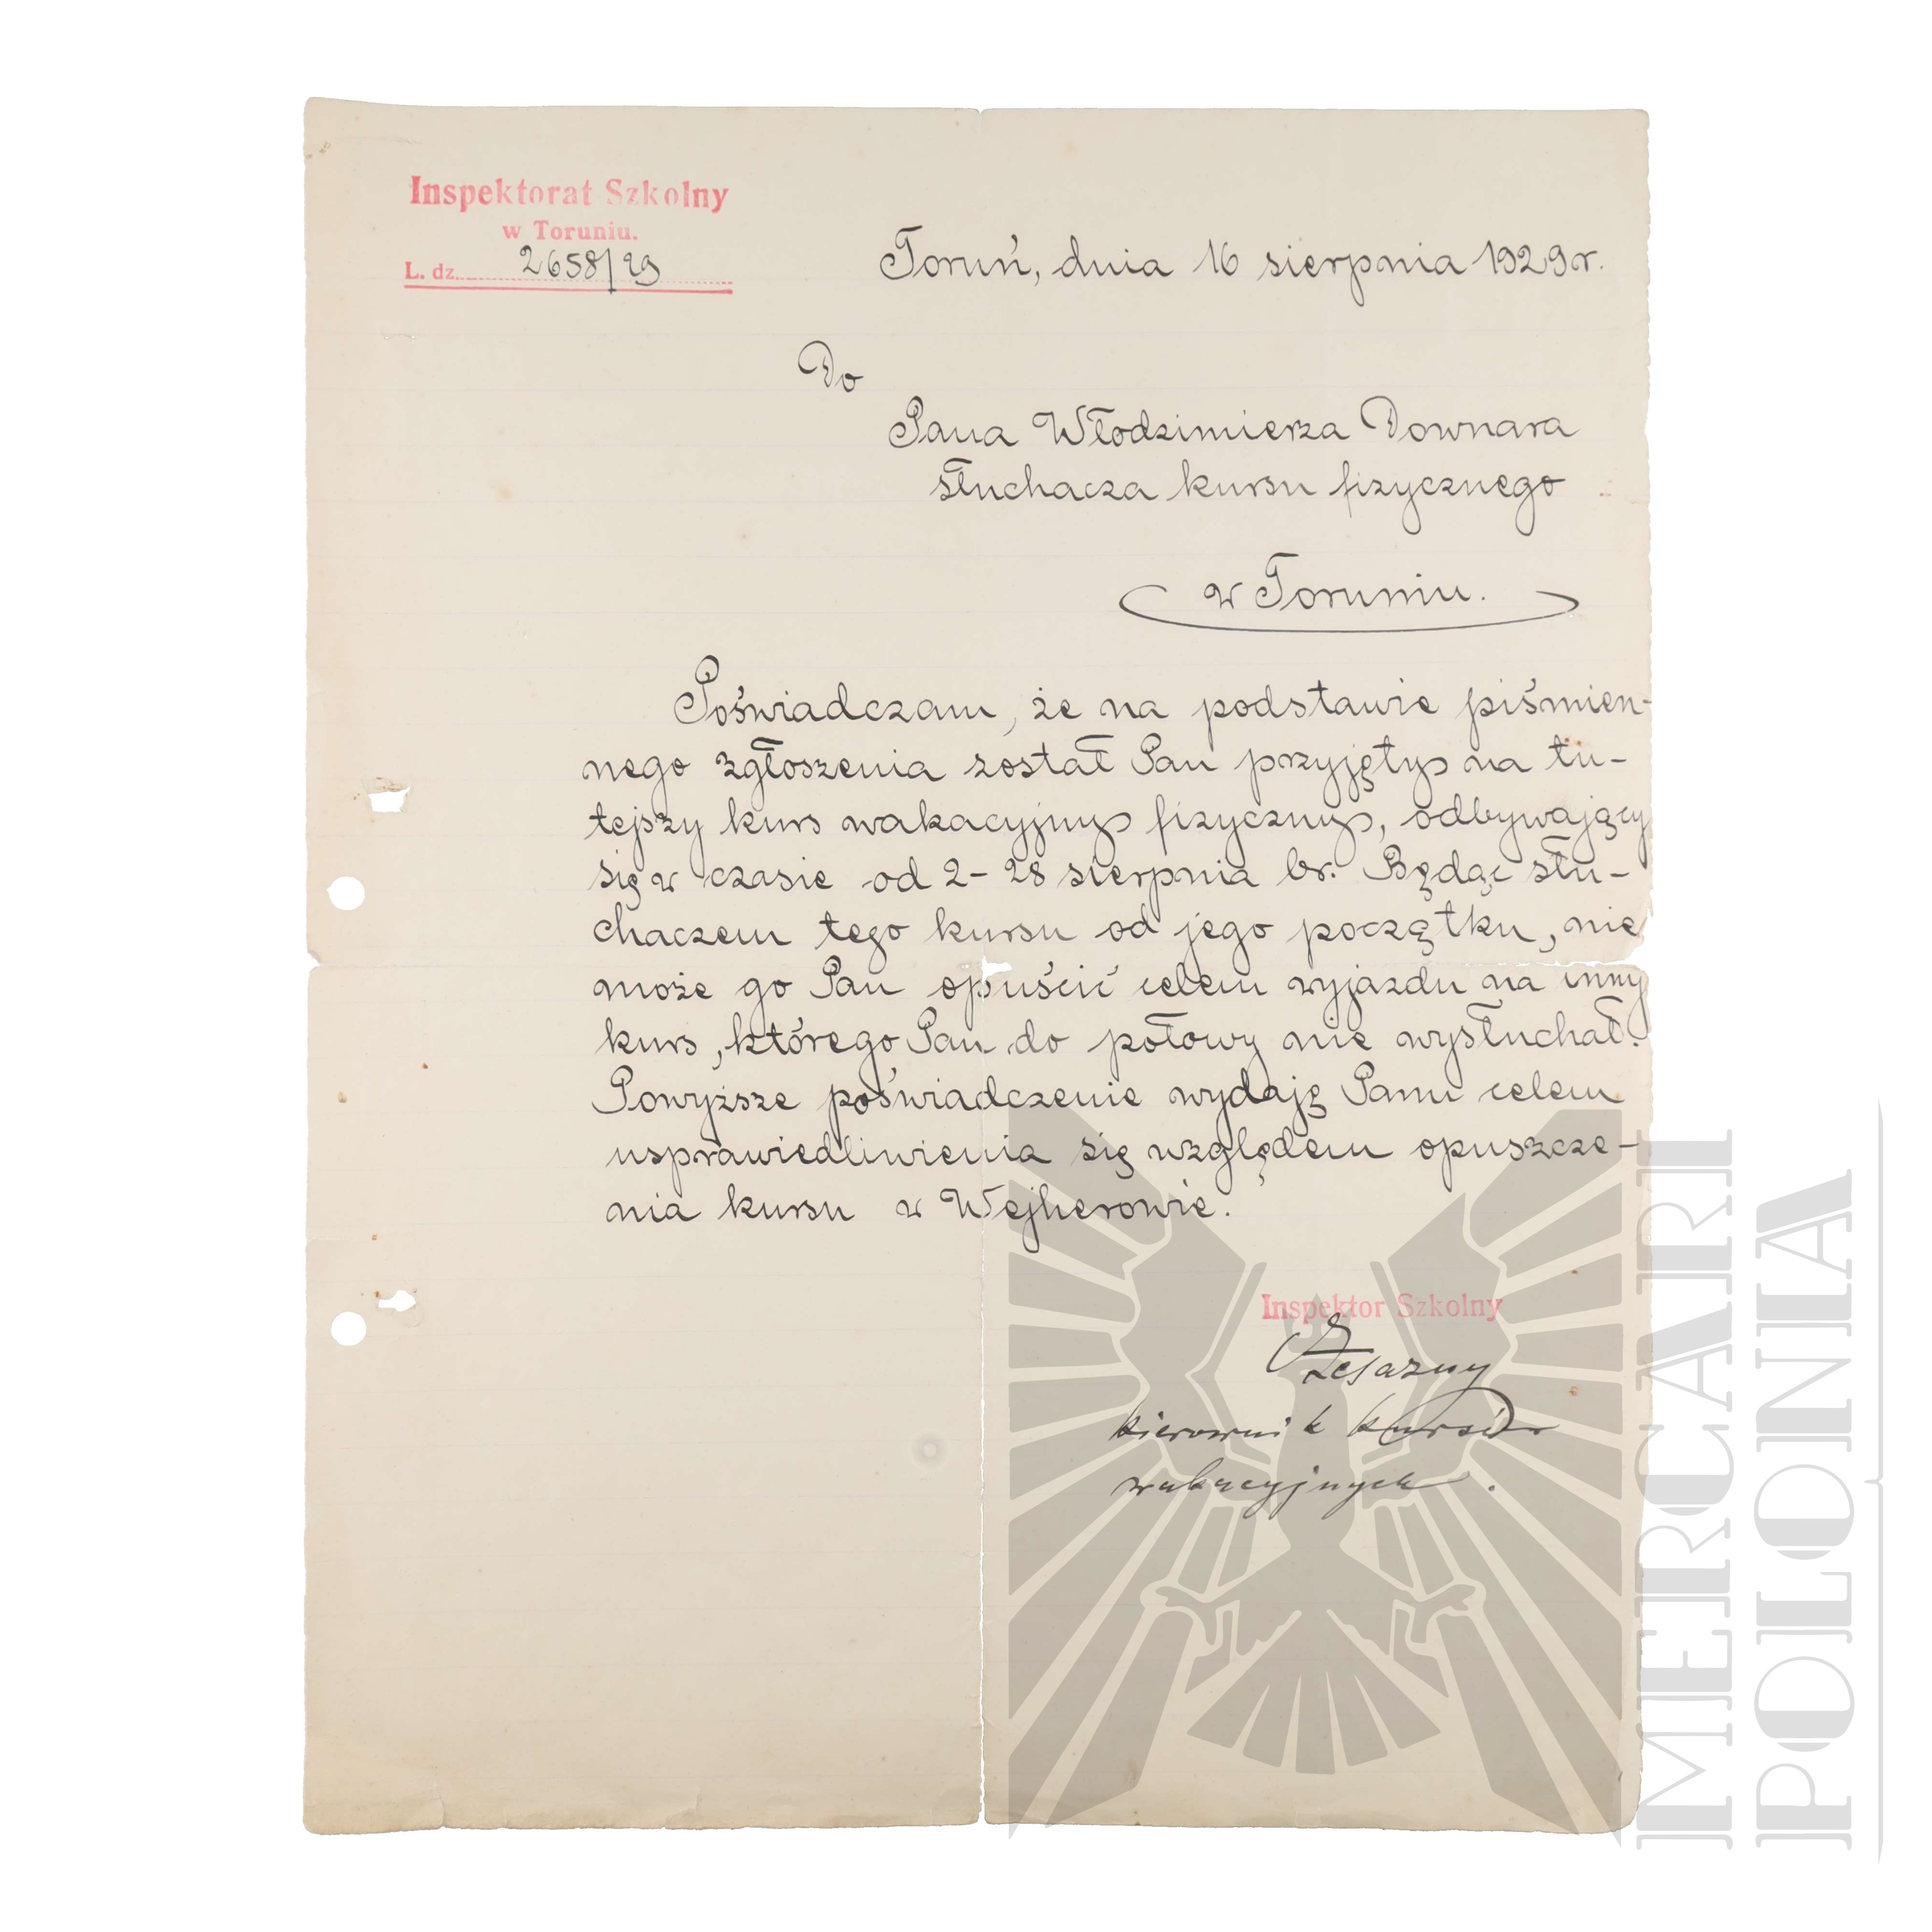 Inspektorat Szkolny
w Toruniu.
L. dz. 2658/29
Toruń, dnia 16 sierpnia 1929 r.
Do
Pana Włodzimierza Downara
słuchacza kursu fizycznego
w Toruniu.
Poświadczam, że na podstawie piśmien-
nego zgłoszenia został Pan przyjęty na tu-
tejszy kurs wakacyjny fizyczny, odbywający
się w czasie od 2 – 28 sierpnia br. Będąc słu-
chaczem tego kursu od jego początku, nie
może go Pan opuścić celem wyjazdu na inny
kurs, którego Pan do połowy nie wysłuchał.
Powyższe poświadczenie wydaję Panu celem
usprawiedliwienia się względem opuszcze-
nia kursu w Wejherowie.
Inspektor Szkolny
kierownik kursów
wakacyjnych.
MERCARI
POLONIA